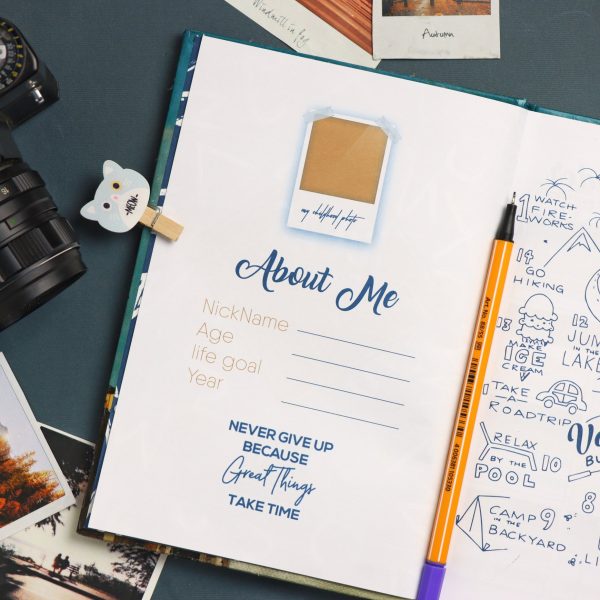 Windmill in fog
Autumn
my childhood photo
MEOW
About Me
NickName
Age
life goal
Year
NEVER GIVE UP
BECAUSE
Great Things
TAKE TIME
1 WATCH
FIRE-
WORKS
14
GO
HIKING
13
MAKE
ICE
CREAM
12
JUM
IN THE
LAKE
TAKE
A
ROADTRIP
RELAX
BY THE
POOL
10
CAMP 9
IN THE
BACKYARD
8
BU